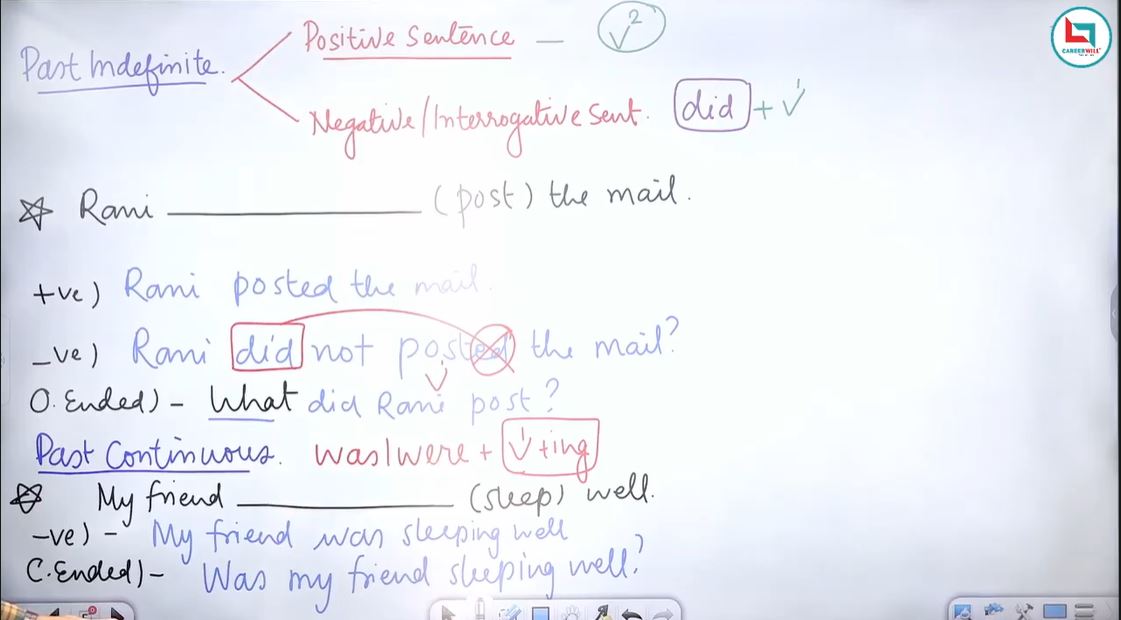 Positive Sentence – V²
Past Indefinite.
CAREERWILL
Negative/Interrogative Sent. did + V¹
☆ Rani ________ (post) the mail.
+ve) Rani posted the mail.
–ve) Rani did not posted the mail?
V¹
O. Ended) – What did Rani post?
Past Continuous. was/were + V¹+ing
☆ My friend ________ (sleep) well.
–ve) – My friend was sleeping well
C. Ended) – Was my friend sleeping well?